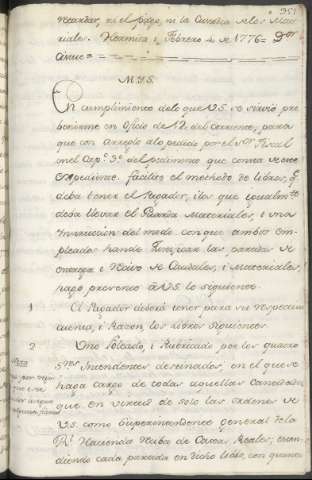 252
recaudar, ni el pago, ni la Cuenta de los Mate-
riales. Febrero 4 de 1776 = Dor
M. Y. S.
En cumplimiento de lo que V.S. se sirvió pre-
benirme en Oficio de 12 del Corriente, para
que con arreglo a lo pedido por el Sor Fiscal
en el Capo. 3o del que consta de este
expediente facilite el methodo de libros, q.
deba tener el Pagador, i los que igualmte
deba llevar el Guarda Materiales, i una
Instruccion del modo con que ambos em-
pleados han de las partidas de
entrega i recivo de Caudales, i Materiales,
hago presente à V.S. lo siguiente.
1 El Pagador deberá tener para su respectiva
cuenta, i Razon, los libros siguientes.
2 Uno foliado, i Rubricado por los quatro
Sres Intendentes destinados, en el que se
haga cargo de todas aquellas Cantidades
que en virtud de solo las ordenes de
V.S. como Superintendente general de la
Rl. Hacienda de Casas Reales;
diendo cada partida en dicho libro, con